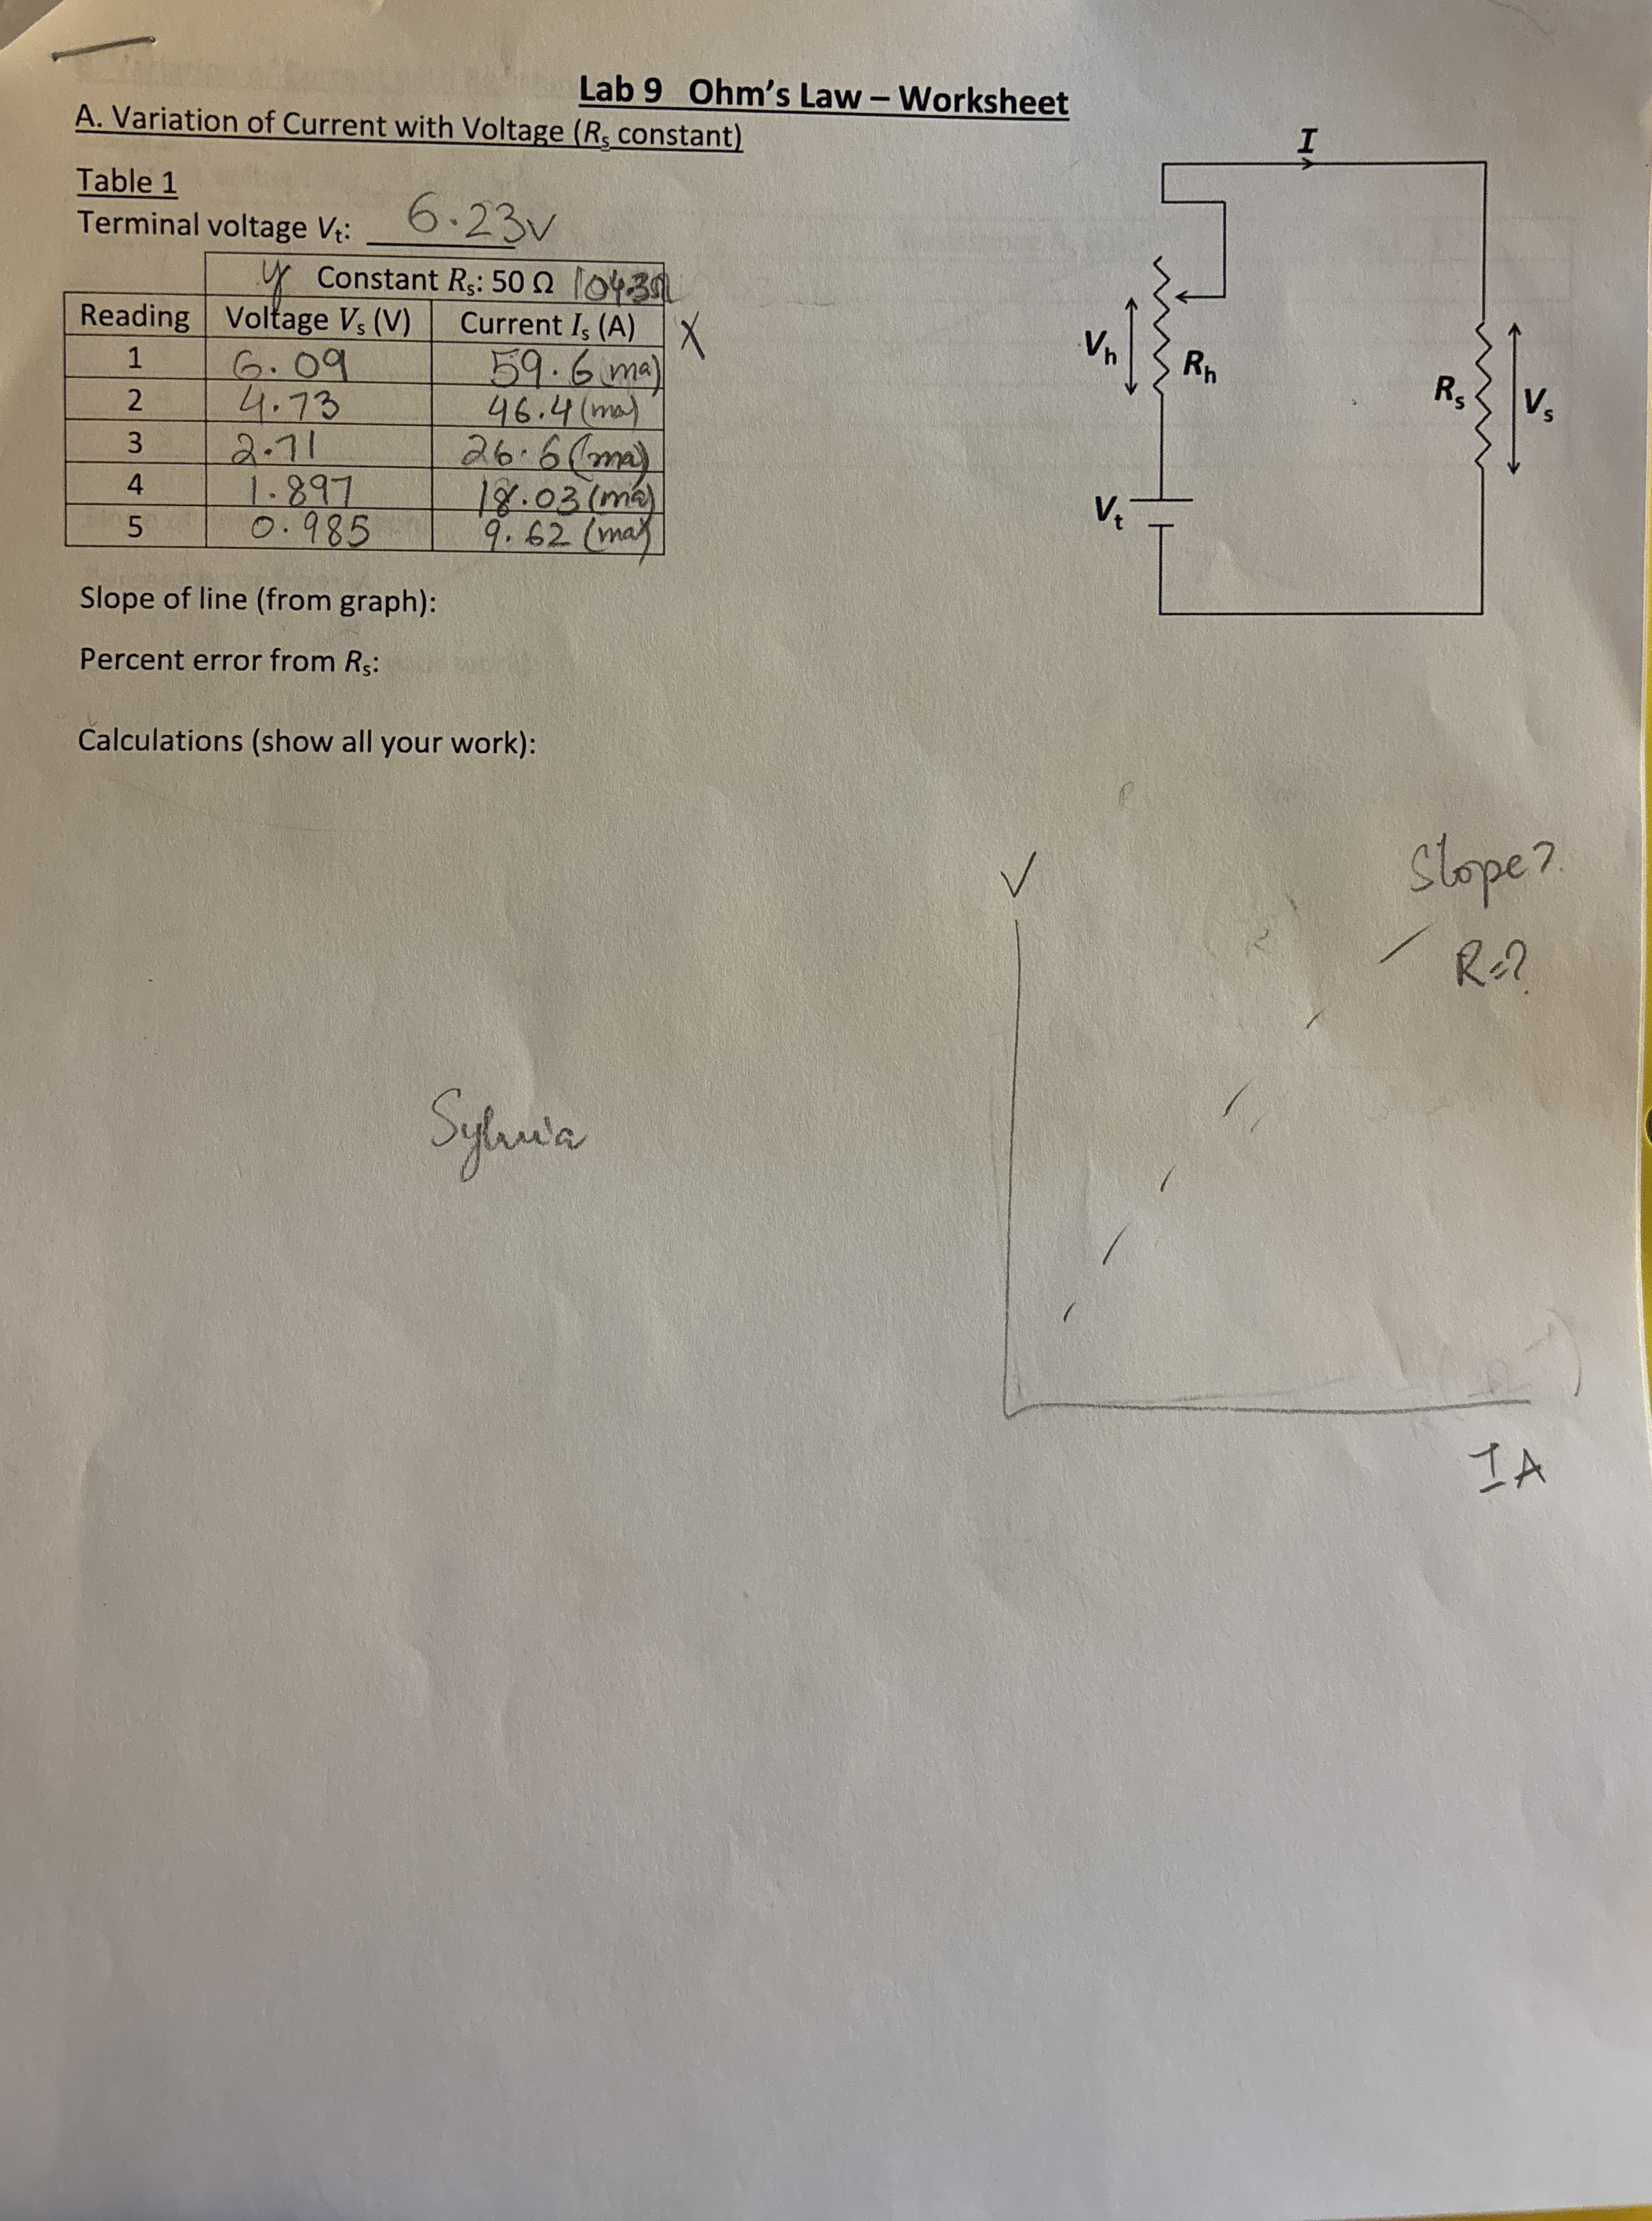 Lab 9 Ohm's Law – Worksheet
A. Variation of Current with Voltage (Rs constant)
I
Table 1
Terminal voltage Vt: 6.23v
y Constant Rs: 50 Ω 104.3Ω
Reading Voltage Vs (V) Current Is (A) X
1 6.09 59.6 (ma)
2 4.73 46.4 (ma)
3 2.71 26.6 (ma)
4 1.897 18.03 (ma)
5 0.985 9.62 (ma)
Vh Rh
Rs Vs
Vt
Slope of line (from graph):
Percent error from Rs:
Calculations (show all your work):
V
Slope?
R=?
Sylvia
I A